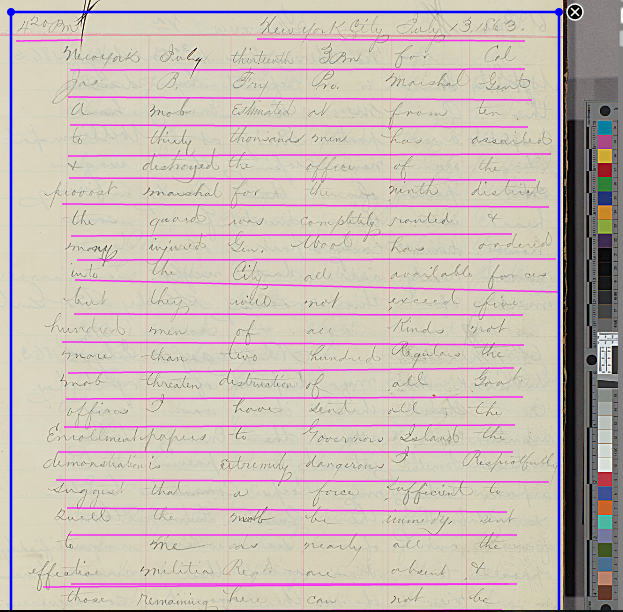 4 20 Pm New York City July 13. 1863.
New York July thirteenth 3 Pm for Col
Jas B. Fry Pro. Marshal Genl
A mob Estimated at from ten
to thirty thousands men has assailed
& destroyed the office of the
provost marshal for the ninth district
the guard was completely routed &
many injured Gen. Wool has ordered
into the City all available forces
but they will not exceed five
hundred men of all Kinds not
more than two hundred Regulars the
mob threaten destruction of all Govt
offices I have sent all the
Enrollment papers to Governors Island the
demonstration is extremely dangerous I Respectfully
suggest that a force sufficient to
quell the mob be immedy. sent
to me as nearly all the
effective militia Regts are absent &
those remaining here can not be